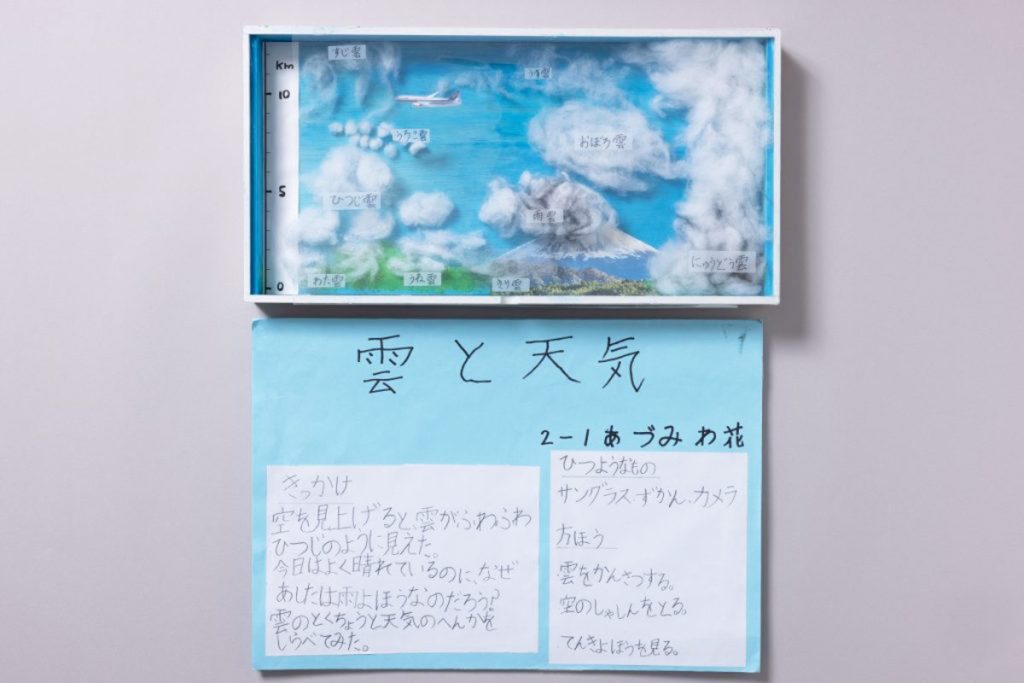 すじ雲
うす雲
km
10
うろこ雲
おぼろ雲
5
ひつじ雲
雨雲
にゅうどう雲
わた雲
うね雲
きり雲
0
雲と天気
2-1あづみわ花
きっかけ
空を見上げると、雲がふわふわ
ひつじのように見えた。
今日はよく晴れているのに、なぜ
あしたは雨よほうなのだろう?
雲のとくちょうと天気のへんかを
しらべてみた。
ひつようなもの
サングラス、ずかん、カメラ
方ほう
雲をかんさつする。
空のしゃしんをとる。
てんきよほうを見る。